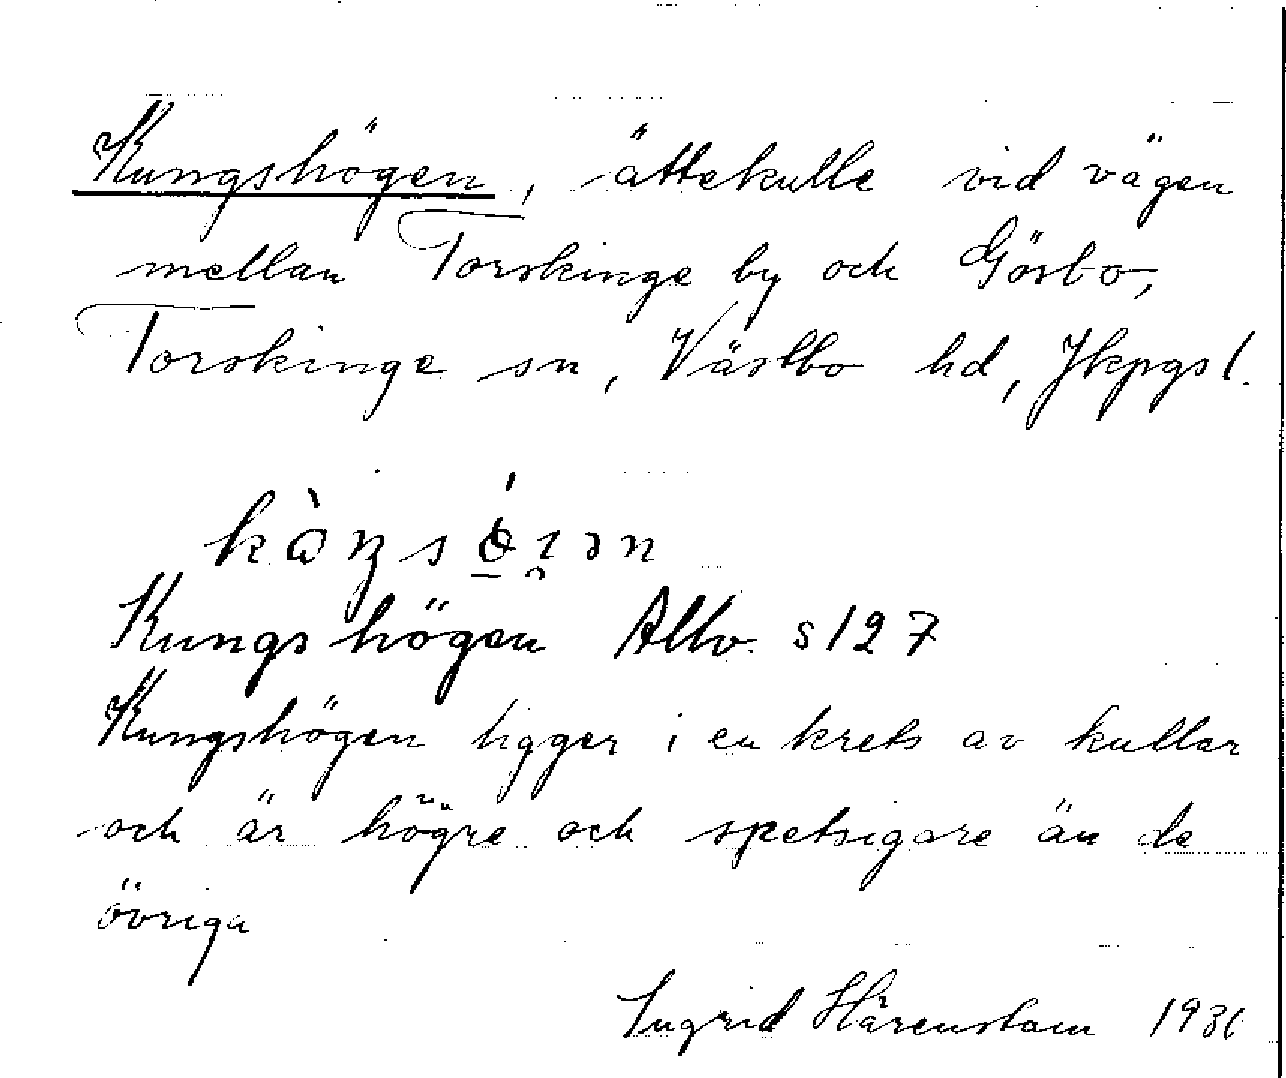 Kungshögen, ättekulle vid vägen
mellan Torskinge by och Gösbo,
Torskinge sn, Västbo hd, Jkpgs l.
Kungshögen Allv. s 127
Kungshögen ligger i en krets av kullar
och är högre och spetsigare än de
övriga
Ingrid Härenstam 1936